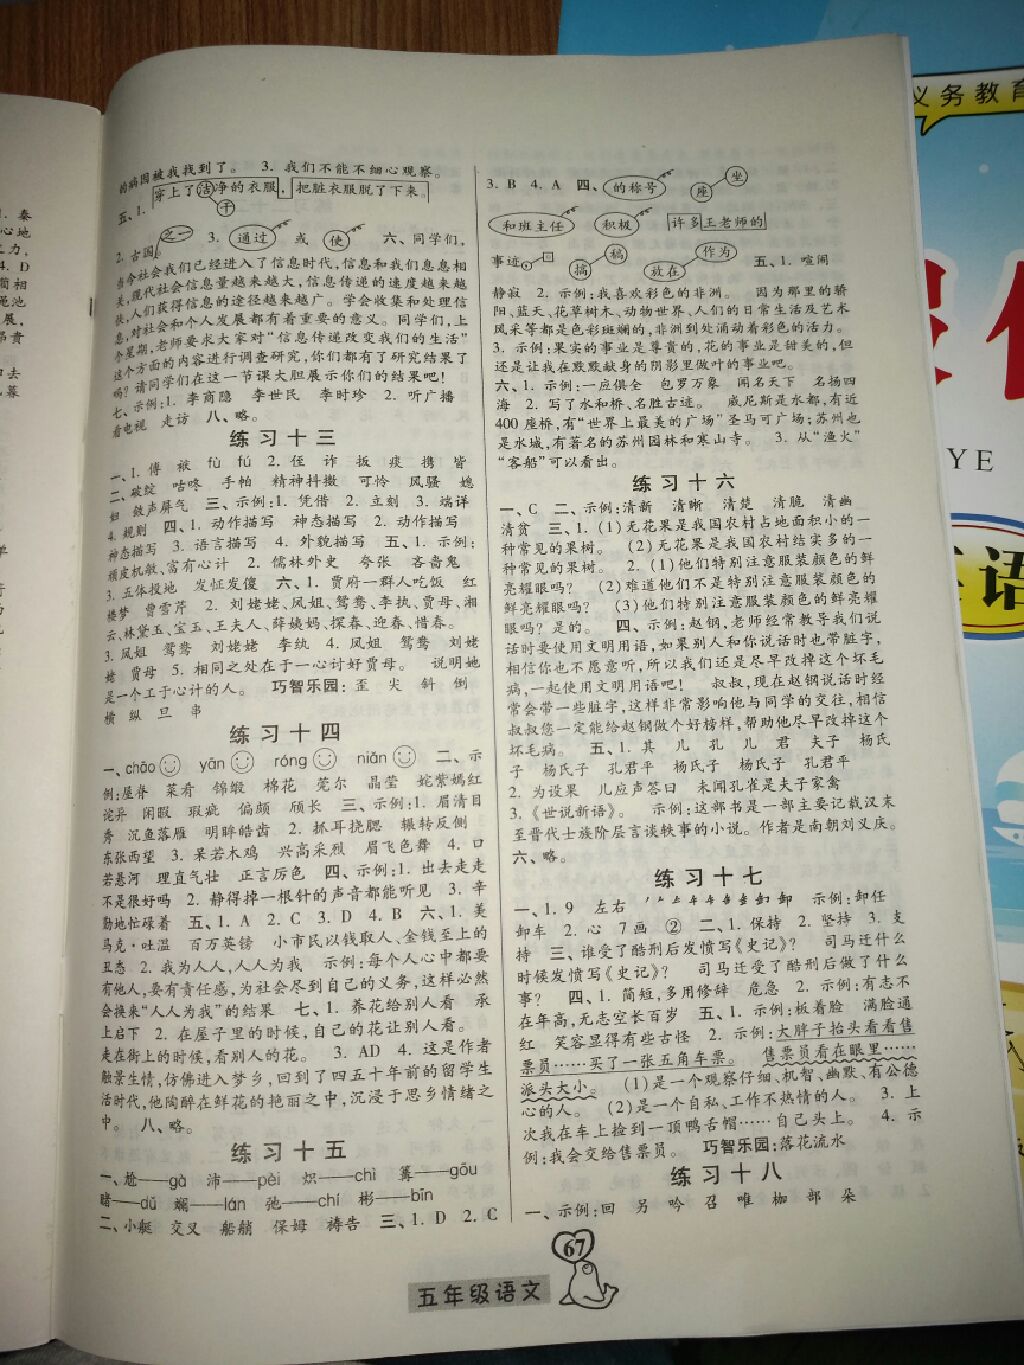 的病因被我找到了。 3. 我们不能不细心观察。
五、1. 穿上了洁净的衣服, 把脏衣服脱了下来。
干
2. 古国之一 3. 通过 或 使 六、同学们,
当今社会我们已经进入了信息时代,信息和我们息息相
关,现代社会信息量越来越大,信息传递的速度越来越
快,人们获得信息的途径越来越广。学会收集和处理信
息,对社会和个人发展都有着重要的意义。同学们,上
个星期,老师要求大家对“信息传递改变我们的生活”
这个方面的内容进行调查研究,你们都有了研究结果了
吗?请同学们在这一节课大胆展示你们的结果吧!
七、示例:1. 李商隐 李世民 李时珍 2. 听广播
看电视 走访 八、略。
练习十三
一、1. 傅 袱 fù fú 2. 侄 诈 扳 痰 携 皆
二、破绽 咕咚 手帕 精神抖擞 可怜 风骚 媳
妇 敛声屏气 三、示例:1. 凭借 2. 立刻 3. 端详
4. 规则 四、1. 动作描写 神态描写 2. 动作描写
神态描写 3. 语言描写 4. 外貌描写 五、1. 示例:
顽皮机敏、富有心计 2. 儒林外史 夸张 吝啬鬼
3. 五体投地 发怔发傻 六、1. 贾府一群人吃饭 红
楼梦 曹雪芹 2. 刘姥姥、凤姐、鸳鸯、李执、贾母、湘
云、林黛玉、宝玉、王夫人、薛姨妈、探春、迎春、惜春。
3. 凤姐 鸳鸯 刘姥姥 李纨 4. 凤姐 鸳鸯 刘姥
姥 贾母 5. 相同之处在于一心讨好贾母。 说明她
是一个工于心计的人。 巧智乐园:歪 尖 斜 倒
横 纵 旦 串
练习十四
一、chāo yān róng niǎn 二、示
例:屋脊 菜肴 锦缎 棉花 莞尔 晶莹 姹紫嫣红
诧异 闲暇 瑕疵 偏颇 颀长 三、示例:1. 眉清目
秀 沉鱼落雁 明眸皓齿 2. 抓耳挠腮 辗转反侧
东张西望 3. 呆若木鸡 兴高采烈 眉飞色舞 4. 口
若悬河 理直气壮 正言厉色 四、示例:1. 出去走走
不是很好吗 2. 静得掉一根针的声音都能听见 3. 辛
勤地忙碌着 五、1. A 2. C 3. D 4. B 六、1. 美
马克·吐温 百万英镑 小市民以钱取人、金钱至上的
丑态 2. 我为人人,人人为我 示例:每个人心中都要
有他人,要有责任感,为社会尽到自己的义务,这样必然
会换来“人人为我”的结果 七、1. 养花给别人看 承
上启下 2. 在屋子里的时候,自己的花让别人看。
走在街上的时候,看别人的花。 3. AD 4. 这是作者
触景生情,仿佛进入梦乡,回到了四五十年前的留学生
活时代,他陶醉在鲜花的艳丽之中,沉浸于思乡情绪之
中。 八、略。
练习十五
一、尬——gà 沛——pèi 炽——chì 篝——gōu
睹——dǔ 斓——lán 弛——chí 彬——bīn
二、小艇 交叉 船艄 保姆 祷告 三、1. D 2. C
3. B 4. A 四、的称号 座 坐
和班主任 积极 许多王老师的
事迹 搞 稿 放在 作为 五、1. 喧闹
静寂 2. 示例:我喜欢彩色的非洲。 因为那里的骄
阳、蓝天、花草树木、动物世界、人们的日常生活及艺术
风采等都是色彩斑斓的,非洲到处涌动着彩色的活力。
3. 示例:果实的事业是尊贵的,花的事业是甜美的,但
还是让我在默默献身的阴影里做叶的事业吧。
六、1. 示例:一应俱全 包罗万象 闻名天下 名扬四
海 2. 写了水和桥、名胜古迹。 威尼斯是水都,有近
400座桥,有“世界上最美的广场”圣马可广场;苏州也
是水城,有著名的苏州园林和寒山寺。 3. 从“渔火”
“客船”可以看出。
练习十六
一、C 二、示例:清新 清晰 清楚 清脆 清幽
清贫 三、1. (1)无花果是我国农村占地面积小的一
种常见的果树。 (2)无花果是我国农村结实多的一
种常见的果树。 2. (1)他们特别注意服装颜色的鲜
亮耀眼吗? (2)难道他们不是特别注意服装颜色的
鲜亮耀眼吗? (3)他们特别注意服装颜色的鲜亮耀
眼吗?是的。 四、示例:赵钢,老师经常教导我们说
话时要使用文明用语,如果别人和你说话时也带脏字,
相信你也不愿意听,所以我们还是尽早改掉这个坏毛
病,一起使用文明用语吧! 叔叔,现在赵钢说话时经
常会带一些脏字,这样非常影响他与同学的交往,相信
叔叔您一定能给赵钢做个好榜样,帮助他尽早改掉这个
坏毛病。 五、1. 其 儿 孔 儿 君 夫子 杨氏
子 杨氏子 孔君平 杨氏子 杨氏子 孔君平
2. 为设果 儿应声答曰 未闻孔雀是夫子家禽
3.《世说新语》。 示例:这部书是一部主要记载汉末
至晋代士族阶层言谈轶事的小说。作者是南朝刘义庆。
六、略。
练习十七
一、1. 9 左右 卸 示例:卸任
卸车 2. 心 7画 ② 二、1. 保持 2. 坚持 3. 支
持 三、谁受了酷刑后发愤写《史记》? 司马迁什么
时候发愤写《史记》? 司马迁受了酷刑后做了什么
事? 四、1. 简短,多用修辞 危急 2. 示例:有志不
在年高,无志空长百岁 五、1. 示例:板着脸 满脸通
红 笑容显得有些古怪 2. 示例:大胖子抬头看看售
票员……买了一张五角车票。 售票员看在眼里……
派头大小。 (1)是一个观察仔细、机智、幽默、有公德
心的人。 (2)是一个自私、工作不热情的人。 3. 上
次我在车上捡到一顶鸭舌帽……自己头上。 4. 示
例:我会交给售票员。 巧智乐园:落花流水
练习十八
一、示例:回 另 吟 召 唯 枷 部 朵
67
五年级语文
义务教育
YE
语